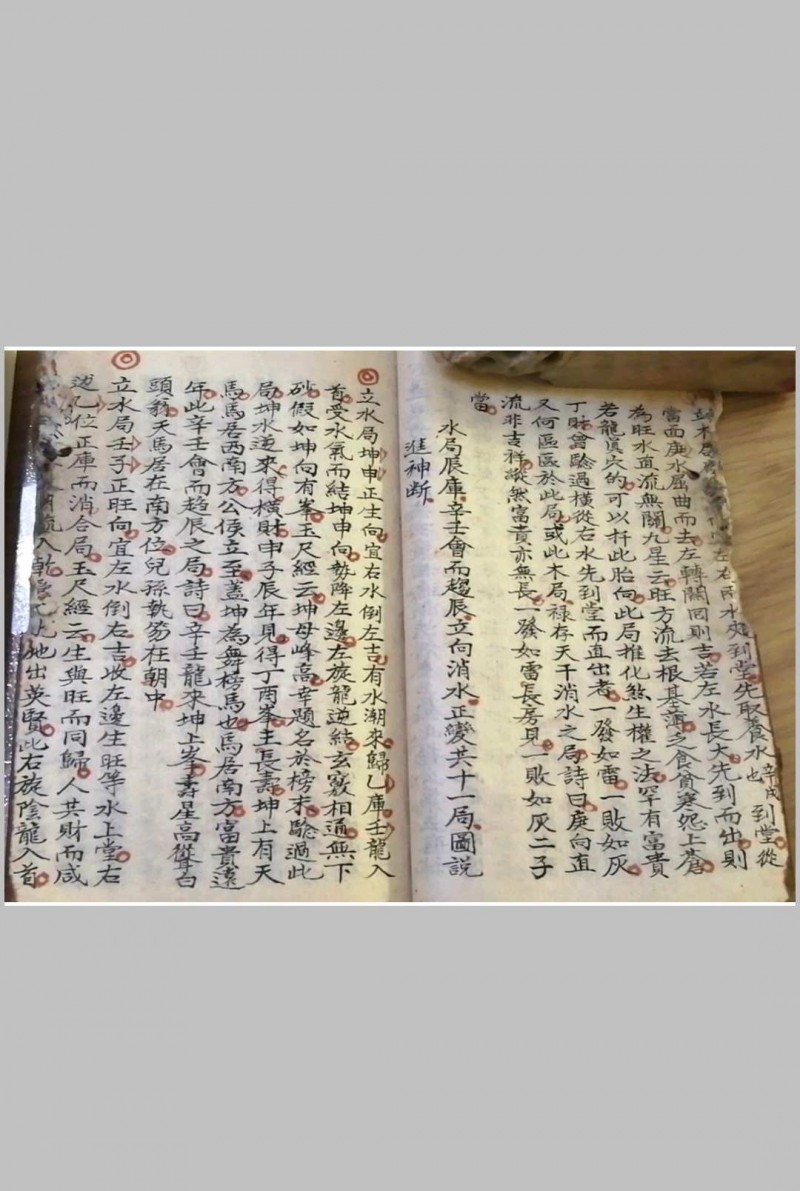 左右兩水夾到堂先取養水也辛戌到堂從
當面庚水屈曲而去左轉關回則吉若左水長大先到而出則
為旺水直流無關九星云旺方流去根基薄之食貧寒怨上蒼
若龍真穴的可以扦此胎向此局推化煞生權之法罕有富貴
丁財曾驗過橫從右水先到堂而直出者一發如雷一敗如灰
又何區區於此局或此木局祿存天干消水之局詩曰庚向直
流非吉祥縱然富貴亦無長一發如雷長房見一敗如灰二子
當
水局辰庫辛壬會而趨辰立向消水正變共十一局圖説
進神断
立水局坤申正生向宜右水倒左吉有水潮來歸乙庫壬龍入
首受水氣而結坤申向勢降左邊左旋龍逆結玄竅相通無下
砂假如坤向有峯玉尺經云坤母峰高幸題名於榜末驗過此
局坤水逆來得橫財申子辰年見得丁丙峯主長壽坤上有天
馬馬居西南方公侯立至蓋坤為舞榜馬也馬居南方富貴遠
年此辛壬會而趨辰之局詩曰辛壬龍來坤上峯壽星高聳白
頭翁天馬居在南方位兒孫執笏在朝中
立水局壬子正旺向宜左水倒右吉收左邊生旺等水上堂右
边乙位正庫而消合局玉尺經云生與旺而同歸人共財而咸
流入乾 地出英賢此右旋陰龍入首